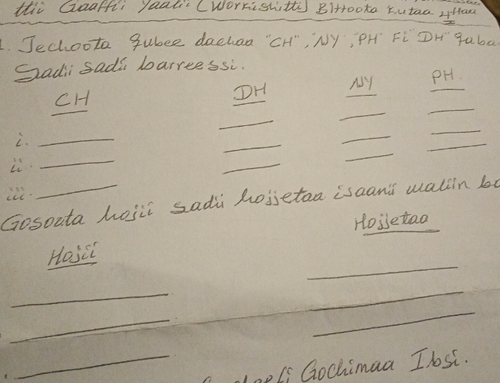 Gaaffii Yaalii (Workishitti) Barnoota Kutaa 4ffaa
1. Jechoota qubee dachaa "CH", "NY", "PH" Fi "DH" qaba
Sadii sadii barreessi.
CH DH NY PH
i.
ii.
iii.
Gosoota hojii sadii hojjetaa isaanii waliin
Hojii Hojjetaa
Gochimaa Ibsi.